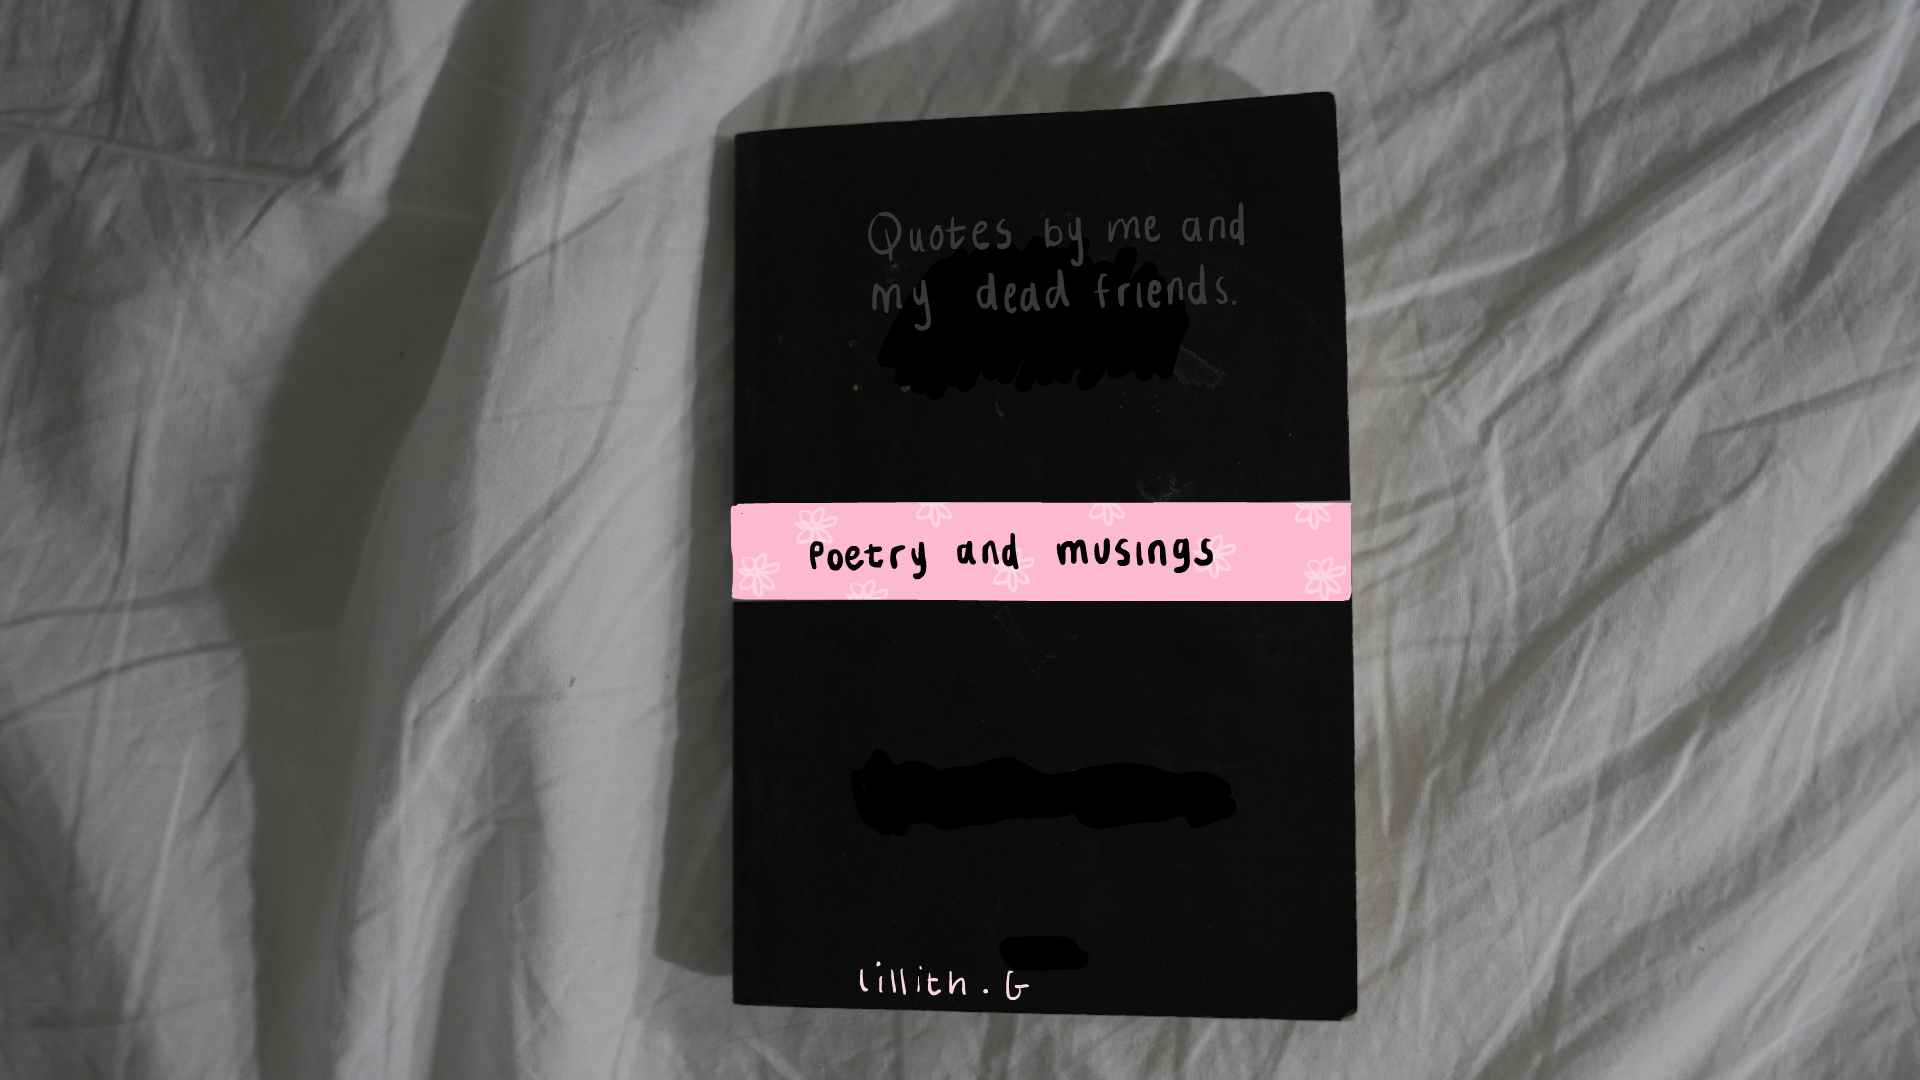 Quotes by me and
my dead friends.
Poetry and musings
lillith. G